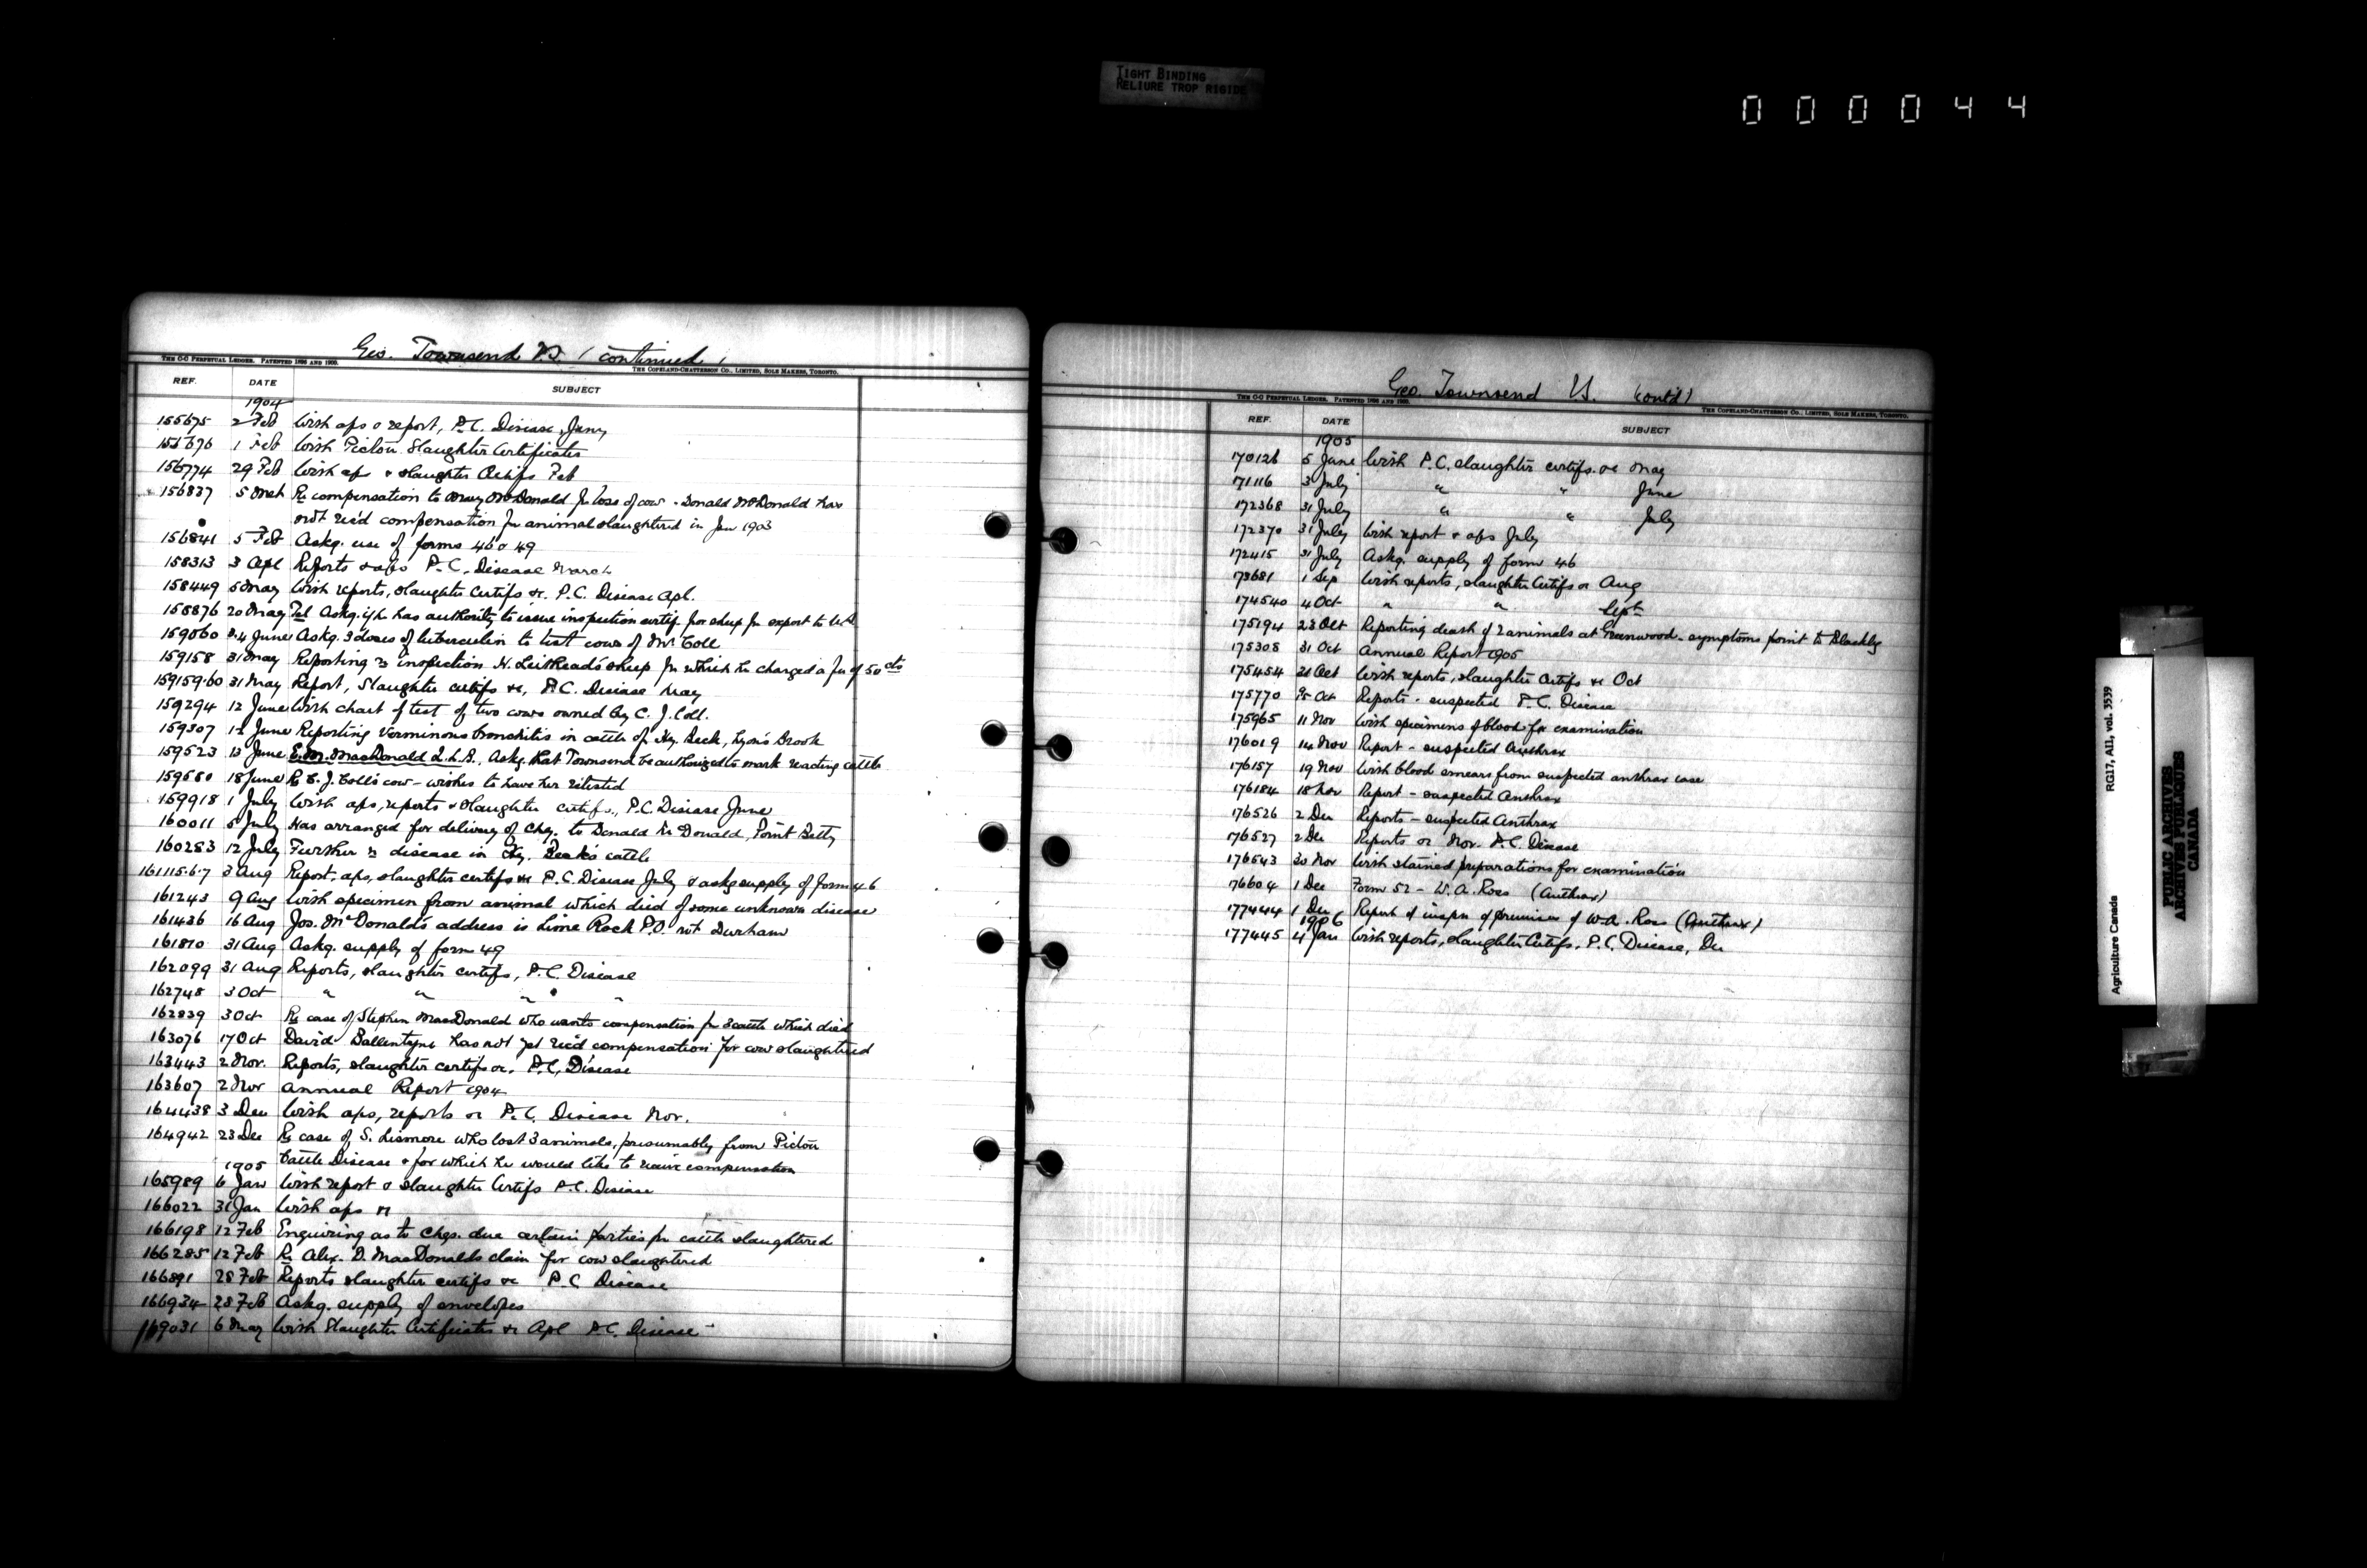 TIGHT BINDING
RELIURE TROP RIGIDE
000044
Geo. Townsend V.S. (continued)
THE C-C PERPETUAL LEDGER. PATENTED 1896 AND 1900.
THE COPELAND-CHATTERSON CO., LIMITED, SOLE MAKERS, TORONTO.
REF. DATE SUBJECT
1904
155675 2 Feb With aps & report, P.C. Disease, Jany
155676 1 Feb With Pictou Slaughter Certificates
156774 29 Feb With ap & slaughter Certifs Feb
156837 5 Mch Re compensation to Mary McDonald for loss of cow - Donald McDonald has
not rec'd compensation for animal slaughtered in Jan 1903
156841 5 Feb Askg. use of forms 46 & 49
158313 3 Apl Reports & aps P.C. Disease March
158449 5 May With reports, slaughter Certifs &c. P.C. Disease Apl.
158876 20 May Tel Askg. if he has authority to issue inspection certif for sheep for export to U.S.
159060 3.4 June Askg. 3 doses of tuberculin to test cows of Mr Coll
159158 31 May Reporting re inspection H. Leithead's sheep for which he charged a fee of 50 cts
159159.60 31 May Report, Slaughter certifs &c, P.C. Disease May
159294 12 June With chart of test of two cows owned by C. J. Coll.
159307 12 June Reporting Verminous bronchitis in cattle of Hy. Beck, Lyon's Brook
159523 13 June E.M. MacDonald M.L.A., Askg. that Townsend be authorized to mark reacting cattle
159580 18 June Re C. J. Coll's cow - wishes to have her retested
159918 1 July With aps, reports & slaughter certifs., P.C. Disease June
160011 5 July Has arranged for delivery of Chq. to Donald McDonald, Point Betty
160283 12 July Further re disease in Hy. Beck's cattle
161115.6.7 3 Aug Report, aps, slaughter certifs &c P.C. Disease July & askg supply of form 46
161243 9 Aug With specimen from animal which died of some unknown disease
161436 16 Aug Jos. McDonald's address is Lime Rock P.O. not Durham
161810 31 Aug Askg. supply of form 49
162099 31 Aug Reports, slaughter certifs, P.C. Disease
162748 3 Oct " " " "
162839 3 Oct Re case of Stephen MacDonald who wants compensation for 3 cattle which died
163076 17 Oct David Ballentyne has not yet rec'd compensation for cow slaughtered
163443 2 Nov. Reports, slaughter certifs &c. P.C. Disease
163607 2 Nov Annual Report 1904
164438 3 Dec With aps, reports &c P.C. Disease Nov.
164942 23 Dec Re case of S. Lismore who lost 3 animals, presumably from Pictou
Cattle Disease & for which he would like to receive compensation
1905
165989 6 Jan With report & slaughter Certifs P.C. Disease
166022 31 Jan With aps
166198 12 Feb Enquiring as to Chqs. due certain parties for cattle slaughtered
166285 12 Feb Re Alex. D. MacDonalds claim for cow slaughtered
166891 28 Feb Reports slaughter certifs &c P.C. Disease
166934 28 Feb Askg. supply of envelopes
169031 6 May With Slaughter Certificates &c Apl P.C. Disease
Geo. Townsend V.S. (contd)
THE C-C PERPETUAL LEDGER. PATENTED 1896 AND 1900.
THE COPELAND-CHATTERSON CO., LIMITED, SOLE MAKERS, TORONTO.
REF. DATE SUBJECT
1905
170126 5 June With P.C. slaughter certifs. &c May
171116 3 July " " June
172368 31 July " " July
172370 31 July With report & aps July
172415 31 July Askg. supply of form 46
173681 1 Sep With reports, slaughter Certifs &c Aug
174540 4 Oct " " Sept
175194 23 Oct Reporting death of 2 animals at Greenwood - symptoms point to Blackleg
175308 31 Oct Annual Report 1905
175454 31 Oct With reports, slaughter Certifs &c Oct
175770 25 Oct Reports - suspected P.C. Disease
175965 11 Nov With specimens of blood for examination
176019 14 Nov Report - suspected Anthrax
176157 19 Nov With blood smears from suspected anthrax case
176184 18 Nov Report - suspected Anthrax
176526 2 Dec Reports - suspected Anthrax
176527 2 Dec Reports &c Nov. P.C. Disease
176543 30 Nov With stained preparations for examination
176604 1 Dec Form 52 - W. A. Ross (Anthrax)
177444 1 Dec Report of inspn of premises of W.A. Ross (Anthrax)
1906
177445 4 Jan With reports, slaughter Certifs. P.C. Disease, Dec
RG17, AII, vol. 3539
Agriculture Canada
PUBLIC ARCHIVES
ARCHIVES PUBLIQUES
CANADA